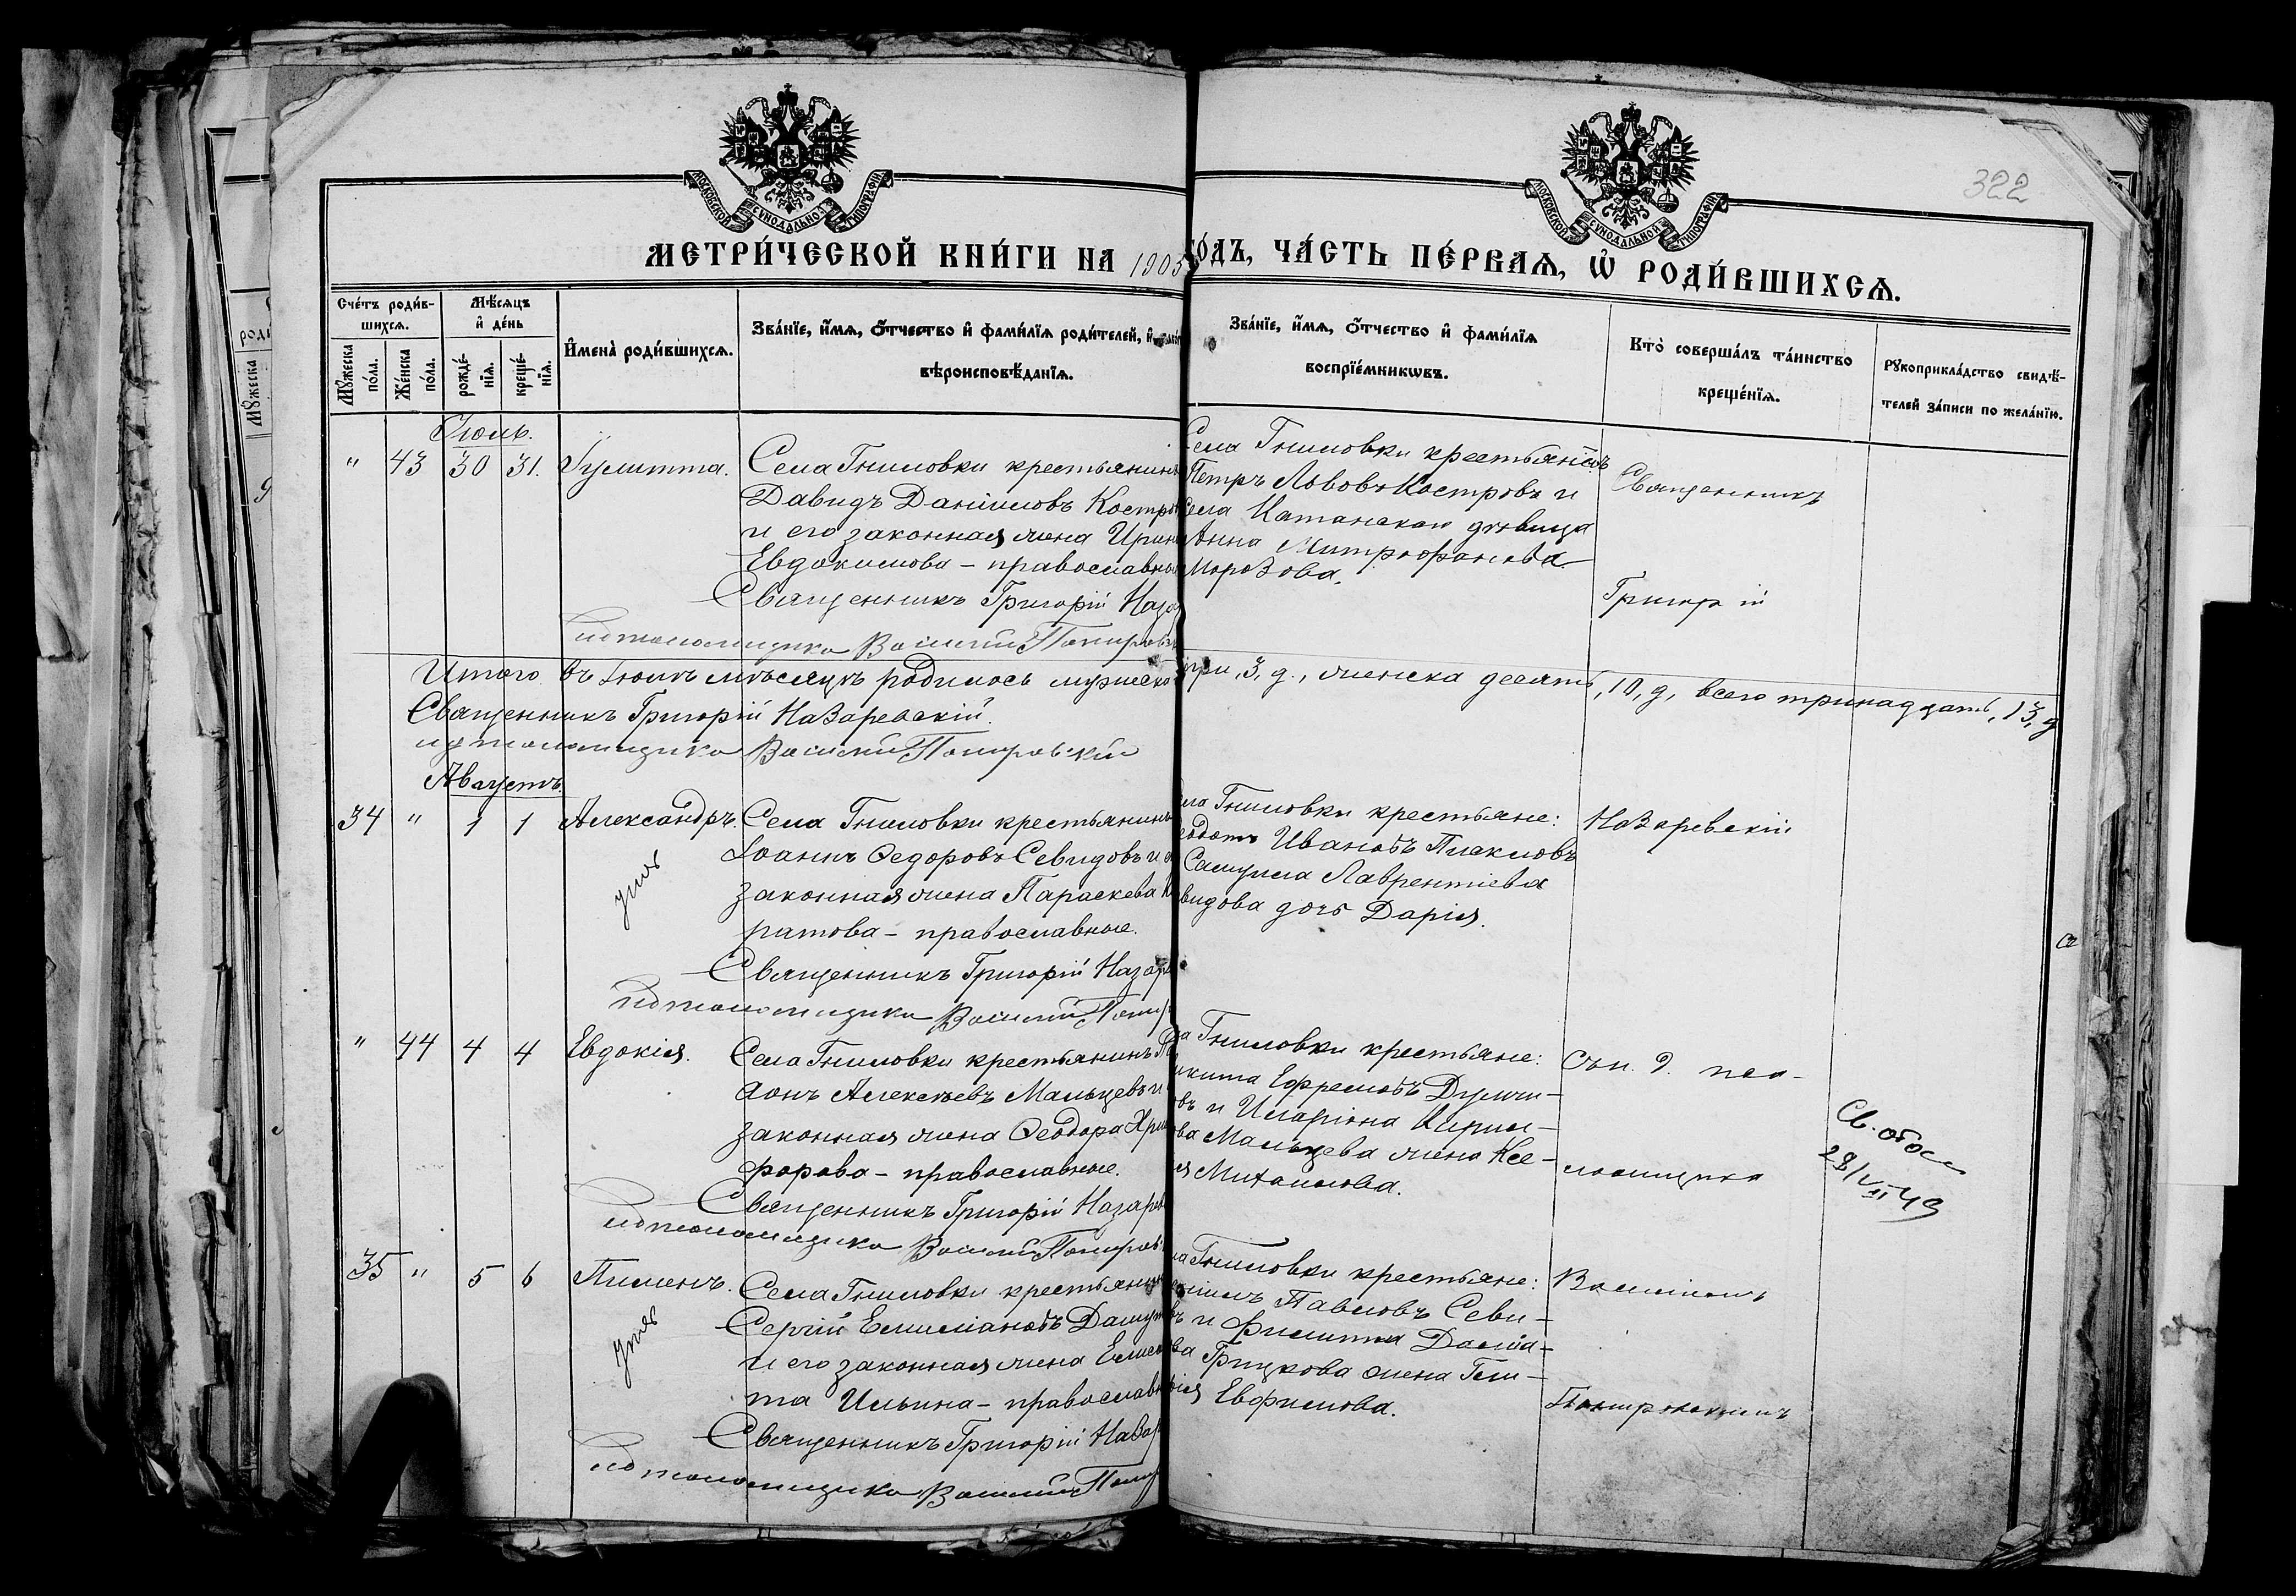 322
МОСКОВСКОЙ СѴНОДАЛЬНОЙ ТИПОГРАФІИ
МОСКОВСКОЙ СѴНОДАЛЬНОЙ ТИПОГРАФІИ
МЕТРИ́ЧЕСКОЙ КНИ́ГИ НА 1905
ГО́ДЪ, ЧА́СТЬ ПЕ́РВАѦ, Ѡ҆ РОДИ́ВШИХСѦ.
Сче́тъ роди́в-
шихсѧ.
Мꙋ́жеска по́ла.
Же́нска по́ла.
Мѣ́сѧцъ
и҆ де́нь
рожде́-
нїѧ.
креще́-
нїѧ.
И҆мена̀ роди́вшихсѧ.
Зва́нїе, и҆́мѧ, ѻ҆́тчество и҆ фами́лїѧ роди́телей, и҆
вѣроисповѣ́данїѧ.
Зва́нїе, и҆́мѧ, ѻ҆́тчество и҆ фами́лїѧ
воспрїе́мникѡвъ.
Кто̀ соверша́лъ та́инство
креще́нїѧ.
Рꙋкоприкла́дство свидѣ́-
телей за́писи по жела́нїю.
Іюль.
" 43 30 31. Іулитта.
Села Гниловки крестьянинъ
Давидъ Даніиловъ Костро
и его законная жена Ирин
Евдокимова - православны
Священникъ Григорій Наза
Псаломщикъ Василій Покровс
Села Гниловки крестьянинъ
Петръ Львовъ Костровъ и
села Катанской дѣвица
Анна Митрофанова
Морозова.
Священникъ
Григорій
Итого въ Іюлѣ мѣсяцѣ родилось мужеска три, 3, д., женска десять, 10, д, всего тринадцать, 13, д
Священникъ Григорій Назаревскій.
Псаломщикъ Василій Покровскій
Августъ.
34 " 1 1 Александръ.
умъ
Села Гниловки крестьянинъ
Іоаннъ Ѳедоровъ Севидовъ и е
законная жена Параскева К
ратова - православные.
Священникъ Григорій Назаре
Псаломщикъ Василій Покр
ела Гниловки крестьяне:
еодотъ Ивановъ Плакловъ
Самуила Лаврентіева
видова дочь Дарія.
Назаревскій
" 44 4 4 Евдокія.
Села Гниловки крестьянинъ
донъ Алексѣевъ Мальцевъ и
законная жена Ѳеодора Хри
форова - православные.
Священникъ Григорій Назарев
Псаломщикъ Василій Покровс
ла Гниловки крестьяне:
икита Ефремовъ
въ и Иларіона Кирил-
ова Мальцева жена Ксе-
ія Михаилова.
съ и. д. пса-
ломщика
Св. обр
28/VII 49
35 " 5 6 Пименъ.
умъ
Села Гниловки крестьянинъ
Сергій Емиліановъ
и его законная жена Елисаве
та Ильина - православн
Священникъ Григорій Назар
Псаломщикъ Василій Покр
ла Гниловки крестьяне:
Павловъ Севи-
въ и Филиппа
ва Грицкова жена Гли-
рія Евфимова.
Василіемъ
Покровскимъ